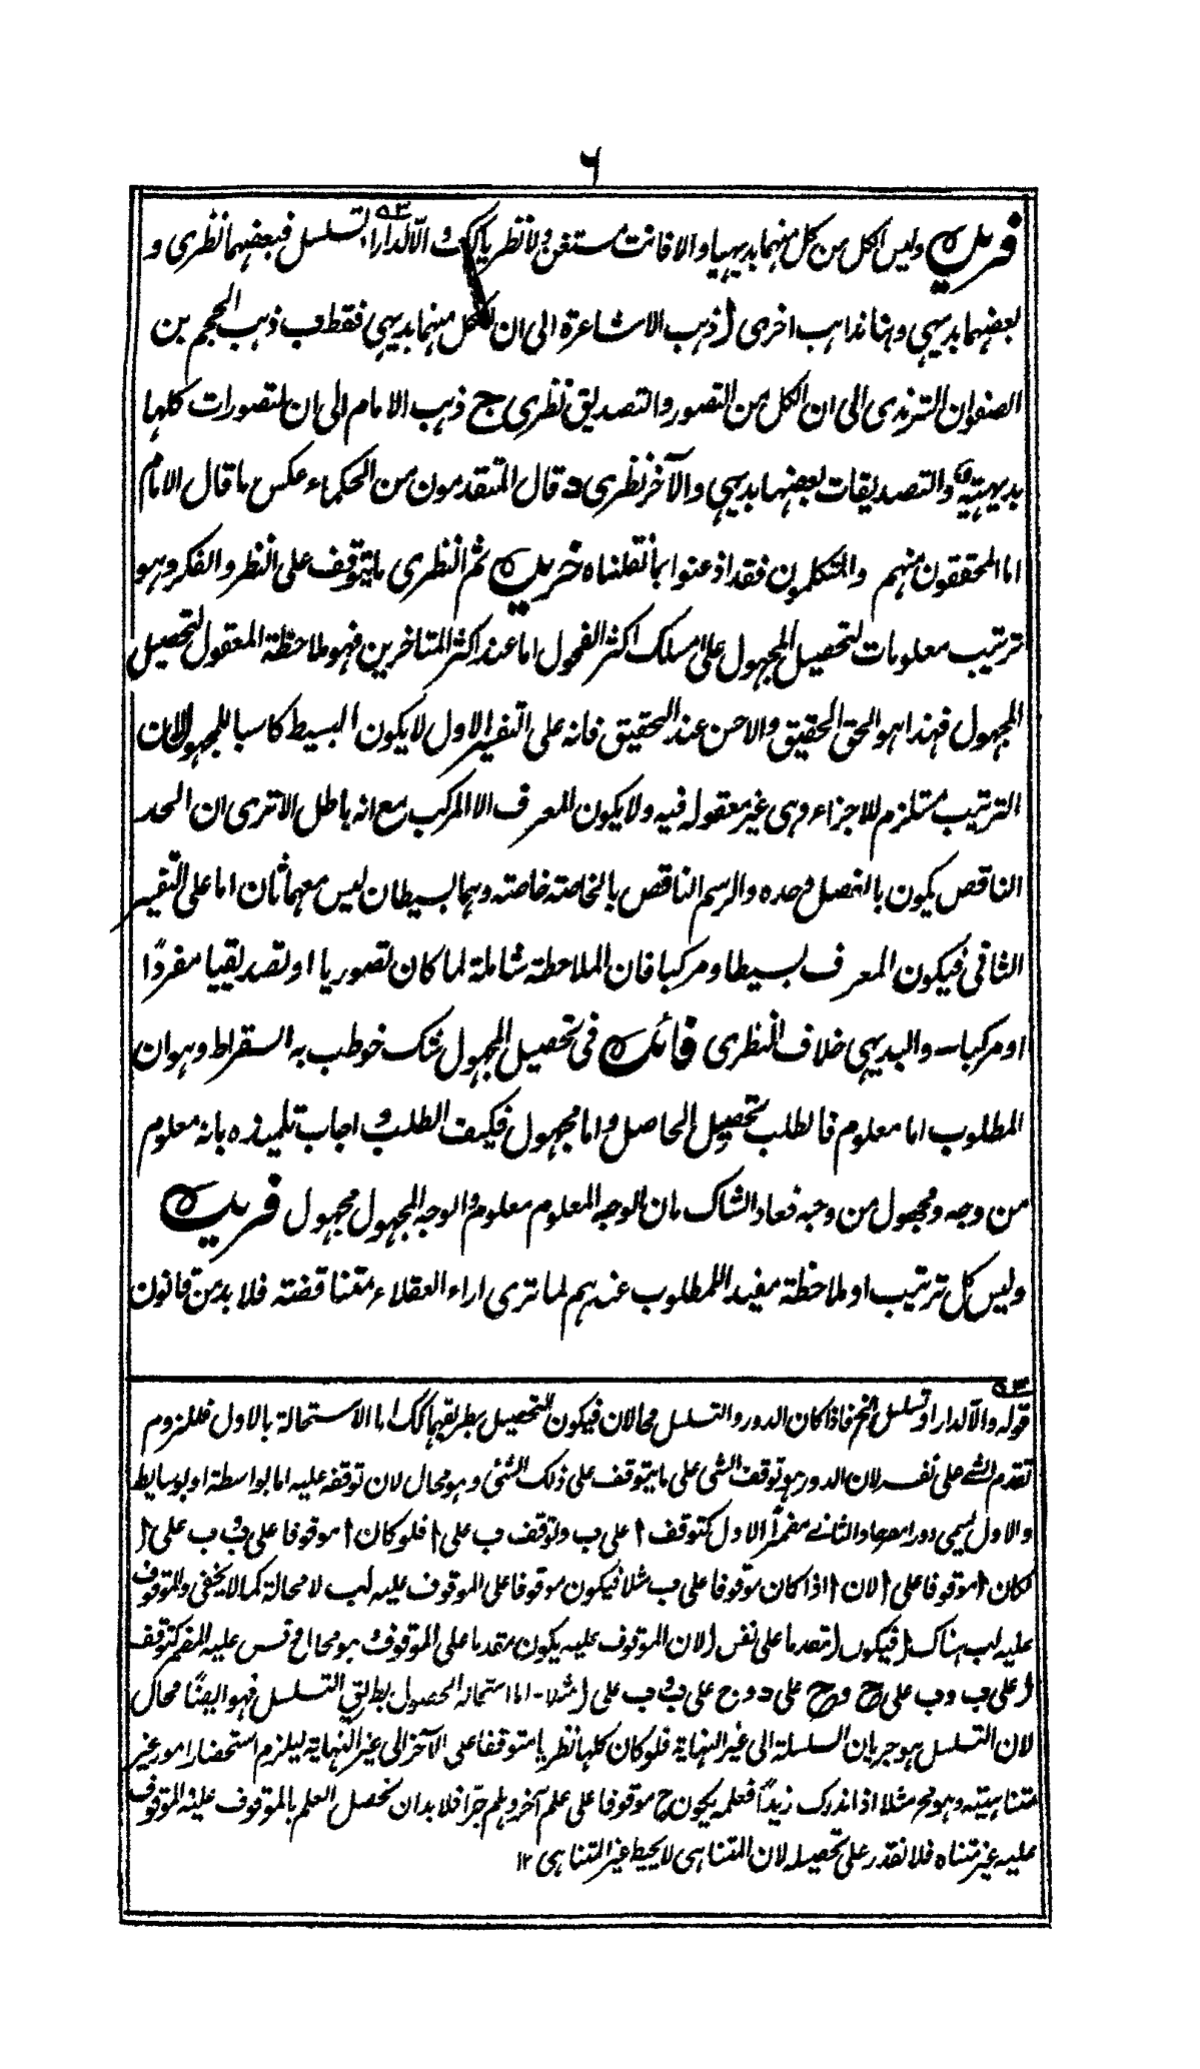 ٦
فريدة وليس الكل من كل منهما بديهيا والا فانت مستغن ولا نظريا كك و الّا لدار او تسلسل فبعضهما نظرى و
بعضهما بديهي وههنا مذاهب اخرى ا ذهب الاشاعرة الى ان الكل منهما بديهي فقط ب ذهب الجهم بن
الصفوان الترمذى الى ان الكل من التصور والتصديق نظرى ج ذهب الامام الى ان التصورات كلها
بديهية والتصديقات بعضها بديهي والآخر نظرى د قال المتقدمون من الحكماء عكس ما قال الامام
اما المحققون منهم والمتكلمون فقد اذعنوا بما نقلناه فريدة ثم النظرى ما يتوقف على النظر والفكر وهو
ترتيب معلومات لتحصيل المجهول على مسلك اكثر الفحول اما عند اكثر المتاخرين فهو ملاحظة المعقول لتحصيل
المجهول فهذا هو الحق الحقيق والاحسن عند التحقيق فانه على التفسير الاول لا يكون البسيط كاسبا للمجهول لان
الترتيب مستلزم للاجزاء وهى غير معقولة فيه ولا يكون المعرف الا المركب مع انه باطل الا ترى ان الحد
الناقص يكون بالفصل وحده والرسم الناقص بالخاصة خاصته وهما بسيطان ليس معهما ثان اما على التفسير
الثانى فيكون المعرف بسيطا ومركبا فان الملاحظة شاملة لما كان تصوريا او تصديقيا مفردًا
او مركبا۔ والبديهي خلاف النظرى فائدة فى تحصيل المجهول شك خوطب به السقراط وهو ان
المطلوب اما معلوم فالطلب تحصيل الحاصل واما مجهول فكيف الطلب و اجاب تلميذه بانه معلوم
من وجه ومجهول من وجه فعاد الشاك بان الوجه المعلوم معلوم والوجه المجهول مجهول فريدة
وليس كل ترتيب او ملاحظة مفيد اللمطلوب عندهم لما ترى اراء العقلاء متناقضته فلا بد من قانون
قوله والّا لدار او تسلسل الخ فاذا كان الدور والتسلسل محالان فيكون التحصيل بطريقهما كك اما الاستحالة بالاول فللزوم
تقدم الشے على نفسه لان الدور هو توقف الشى على ما يتوقف على ذلك الشئى وهو محال لان توقفه عليه اما بواسطة او بوسايط
والاول يسمى دورا مصرحا والثانے مضمرًا الاول كتوقف ا على ب وتوقف ب على ا فلو كان ا موقوفا على ب و ب على ا
لكان ا موقوفا على ا لان ا اذا كان موقوفا على ب مثلا فيكون موقوفا على الموقوف عليه لب لا محالة كما لا يخفى والموقوف
عليه لب هناك ا فيكون ا مقدما على نفس ا لان الموقوف عليه يكون مقدما على الموقوف وهو محال وقس عليه المضمر كتوقف
ا على ب وب على ج وج على د و ح على ب و ب على ا مثلا۔ اما استحالة الحصول بطريق التسلسل فهو ايضًا محال
لان التسلسل هو جريان السلسلة الى غير النهاية فلو كان كلها نظريا متوقفا على الآخر الى غير النهاية ليلزم استحضار امور غير
متناهيته وهو مح مثلا اذا ندرك زيدًا فعلمه يكون ح موقوفا على علم آخر وهلم جرّا فلا بد ان نحصل العلم بالموقوف عليه الموقوف
عليه غير متناه فلا نقدر على تحصيله لان المتناهى لا يحيط غير المتناهى ١٢